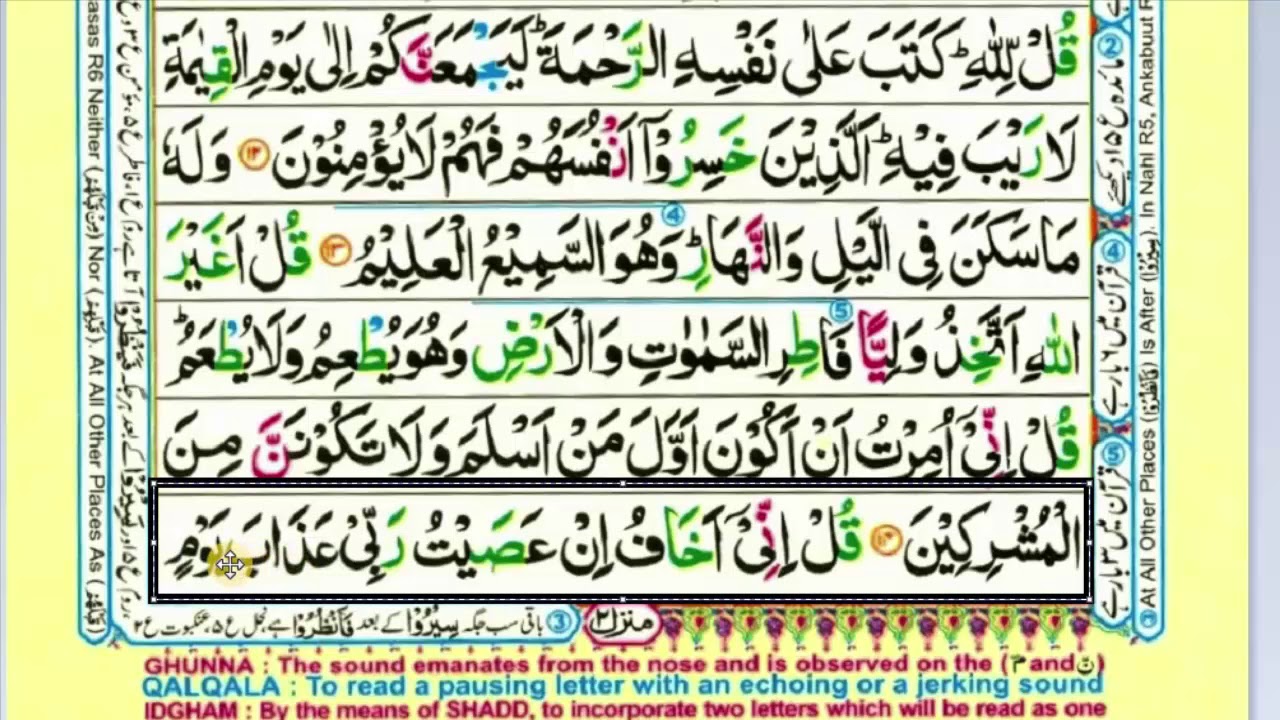 قُلْ لِّلّٰهِ ؕ كَتَبَ عَلٰى نَفْسِهِ الرَّحْمَةَ ؕ لَيَجْمَعَنَّكُمْ اِلٰى يَوْمِ الْقِيٰمَةِ
لَا رَيْبَ فِيْهِ ؕ اَلَّذِيْنَ خَسِرُوْۤا اَنْفُسَهُمْ فَهُمْ لَا يُؤْمِنُوْنَ ۱۲ وَلَهٗ
مَا سَكَنَ فِى الَّيْلِ وَالنَّهَارِ ؕ وَهُوَ السَّمِيْعُ الْعَلِيْمُ ۱۳ قُلْ اَغَيْرَ
④
اللّٰهِ اَتَّخِذُ وَلِيًّا فَاطِرِ السَّمٰوٰتِ وَالْاَرْضِ وَهُوَ يُطْعِمُ وَلَا يُطْعَمُ ؕ
⑤
قُلْ اِنِّىْۤ اُمِرْتُ اَنْ اَكُوْنَ اَوَّلَ مَنْ اَسْلَمَ وَلَا تَكُوْنَنَّ مِنَ
الْمُشْرِكِيْنَ ۱۴ قُلْ اِنِّىْۤ اَخَافُ اِنْ عَصَيْتُ رَبِّىْ عَذَابَ يَوْمٍ
منزل ۲
③ باقی سب جگہ سِيْرُوْا کے بعد فَانْظُرُوْا ہے نحل ع ۵، عنکبوت ع ۲
GHUNNA : The sound emanates from the nose and is observed on the (مّ and نّ)
QALQALA : To read a pausing letter with an echoing or a jerking sound
IDGHAM : By the means of SHADD, to incorporate two letters which will be read as one
asas R6 Neither (مِنْ قَبْلِهِمْ) Nor (قَبْلَهُمْ). At All Other Places As (
③ At All Other Places (فَانْظُرُوْا) Is After (سِيْرُوْا). In Nahl R5, Ankabuut R
② مائدہ ع ۵ اور
④ قرآن میں ۶ بار ہے
⑤ قرآن میں ۳ بار ہے